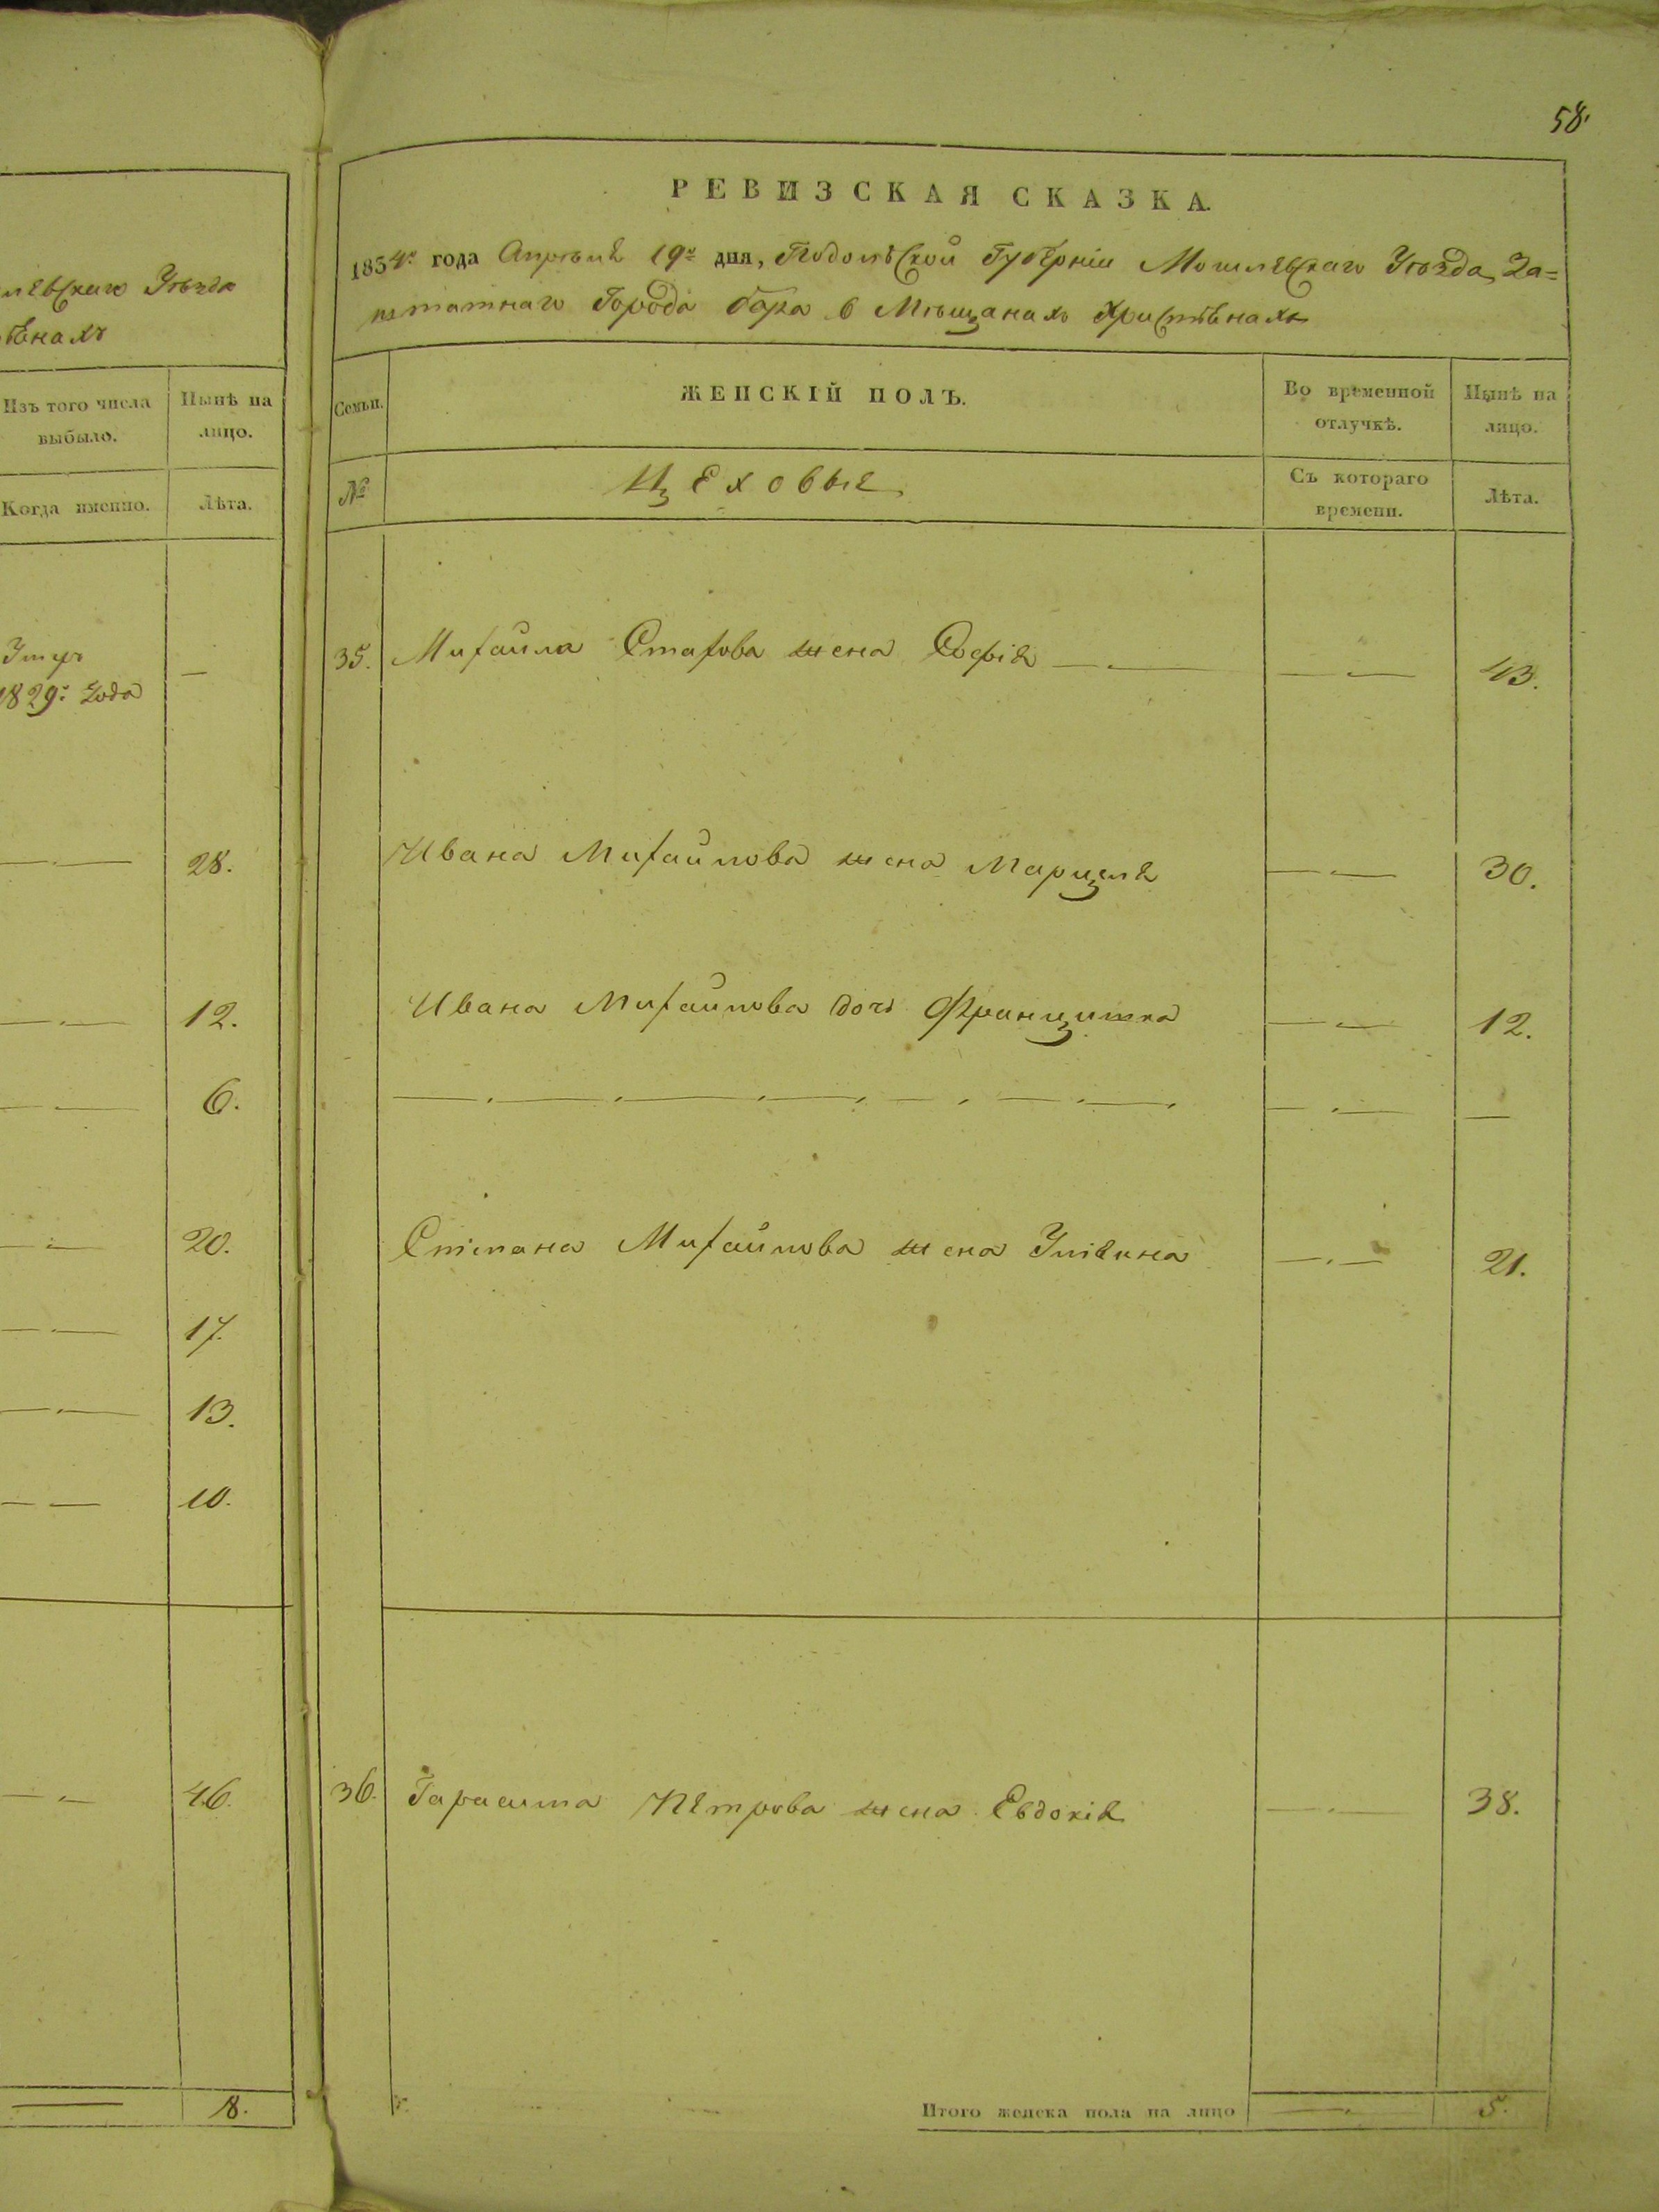 58.
левскаго Уѣзда
Изъ того числа выбыло.
Нынѣ на лицо.
Когда именно.
Лѣта.
1829: года
—
28.
12.
6.
20.
17.
13.
10.
46.
8.
РЕВИЗСКАЯ СКАЗКА.
1854: года Апрѣля 19: дня, Подольской Губерніи Могилевскаго Уѣзда, За=
штатнаго Города Бара в Мѣщанахъ Христіянахъ
Семьи.
ЖЕНСКІЙ ПОЛЪ.
Во временной отлучкѣ.
Нынѣ на лицо.
№
Цеховые
Съ котораго времени.
Лѣта.
35. Михайла Стахова жена Софія — — 43.
Ивана Михайлова жена Марцеля — 30.
Ивана Михайлова дочь Францишка — 12.
— — —
Степана Михайлова жена Устина — 21.
36. Гарасима Петрова жена Евдокія — 38.
Итого женска пола на лицо — 5.